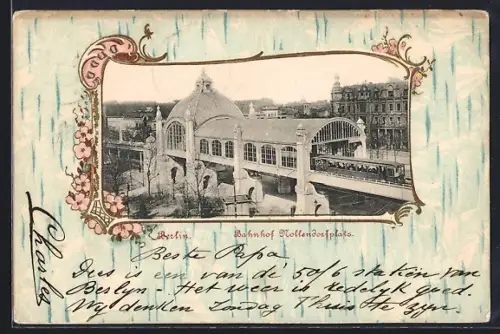 Berlin. Bahnhof Nollendorfplatz.
Beste Papa
Dus is een van de 50/6 staken van
Berlyn - Het weer is redelyk goed.
Wij denken Zondag Thuis te zyn.
Charles